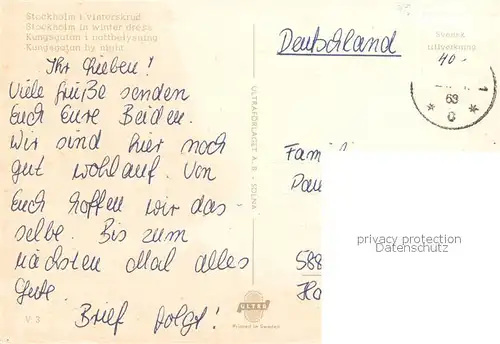 Stockholm i vinterskrud
Stockholm in winter dress
Kungsgatan i nattbelysning
Kungsgatan by night
Ihr Lieben!
Viele Grüße senden
Euch Eure Beiden.
Wir sind hier noch
gut wohlauf. Von
Euch hoffen wir das-
selbe. Bis zum
nächsten Mal alles
Gute.
Brief folgt!
V 3
ULTRAFÖRLAGET A.B. - SOLNA
ULTRA
Printed in Sweden
Deutschland
Svensk
tillverkning
40.-
1
63
* 0 *
Famil
588
Ha
privacy protection
Datenschutz